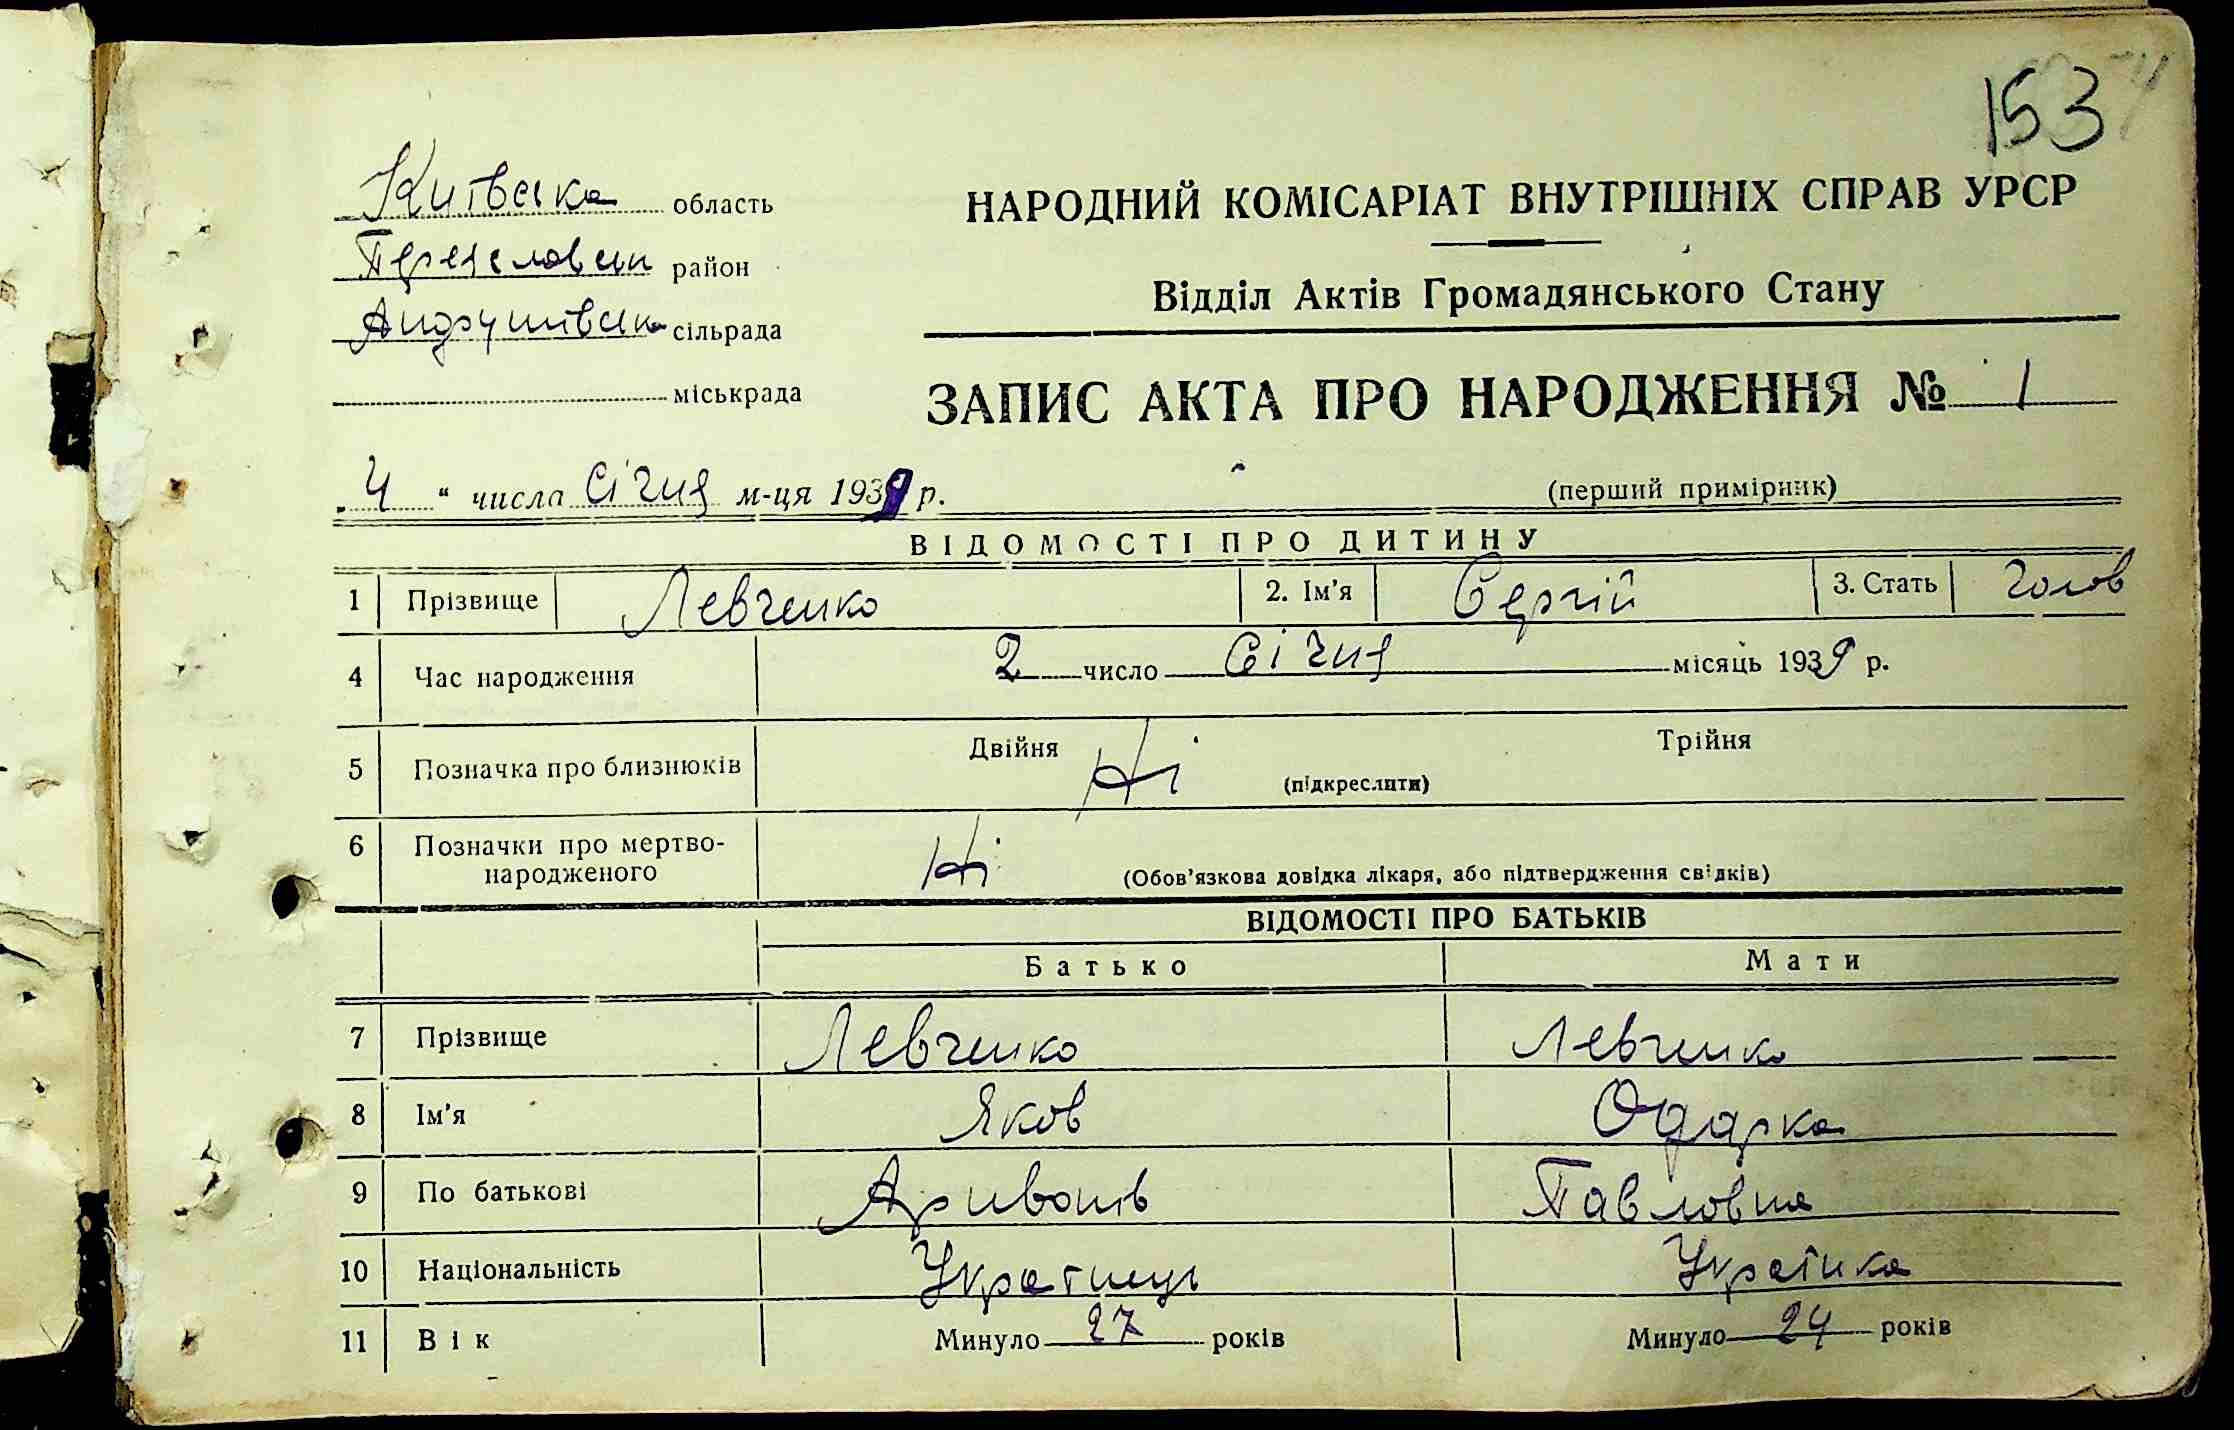 153
Київська область
Переяславськ район
Андрушівська сільрада
міськрада
НАРОДНИЙ КОМІСАРІАТ ВНУТРІШНІХ СПРАВ УРСР
Відділ Актів Громадянського Стану
ЗАПИС АКТА ПРО НАРОДЖЕННЯ № 1
„4“ числа Січня м-ця 1939 р.
(перший примірник)
ВІДОМОСТІ ПРО ДИТИНУ
1 Прізвище Левченко 2. Ім'я Сергій 3. Стать Голов
4 Час народження 2 число Січня місяць 1939 р.
5 Позначка про близнюків Двійня Ні (підкреслити) Трійня
6 Позначки про мертво-
народженого Ні (Обов'язкова довідка лікаря, або підтвердження свідків)
ВІДОМОСТІ ПРО БАТЬКІВ
Батько Мати
7 Прізвище Левченко Левченко
8 Ім'я Яков Одарка
9 По батькові Павловна
10 Національність Українець Українка
11 Вік Минуло 27 років Минуло 24 років